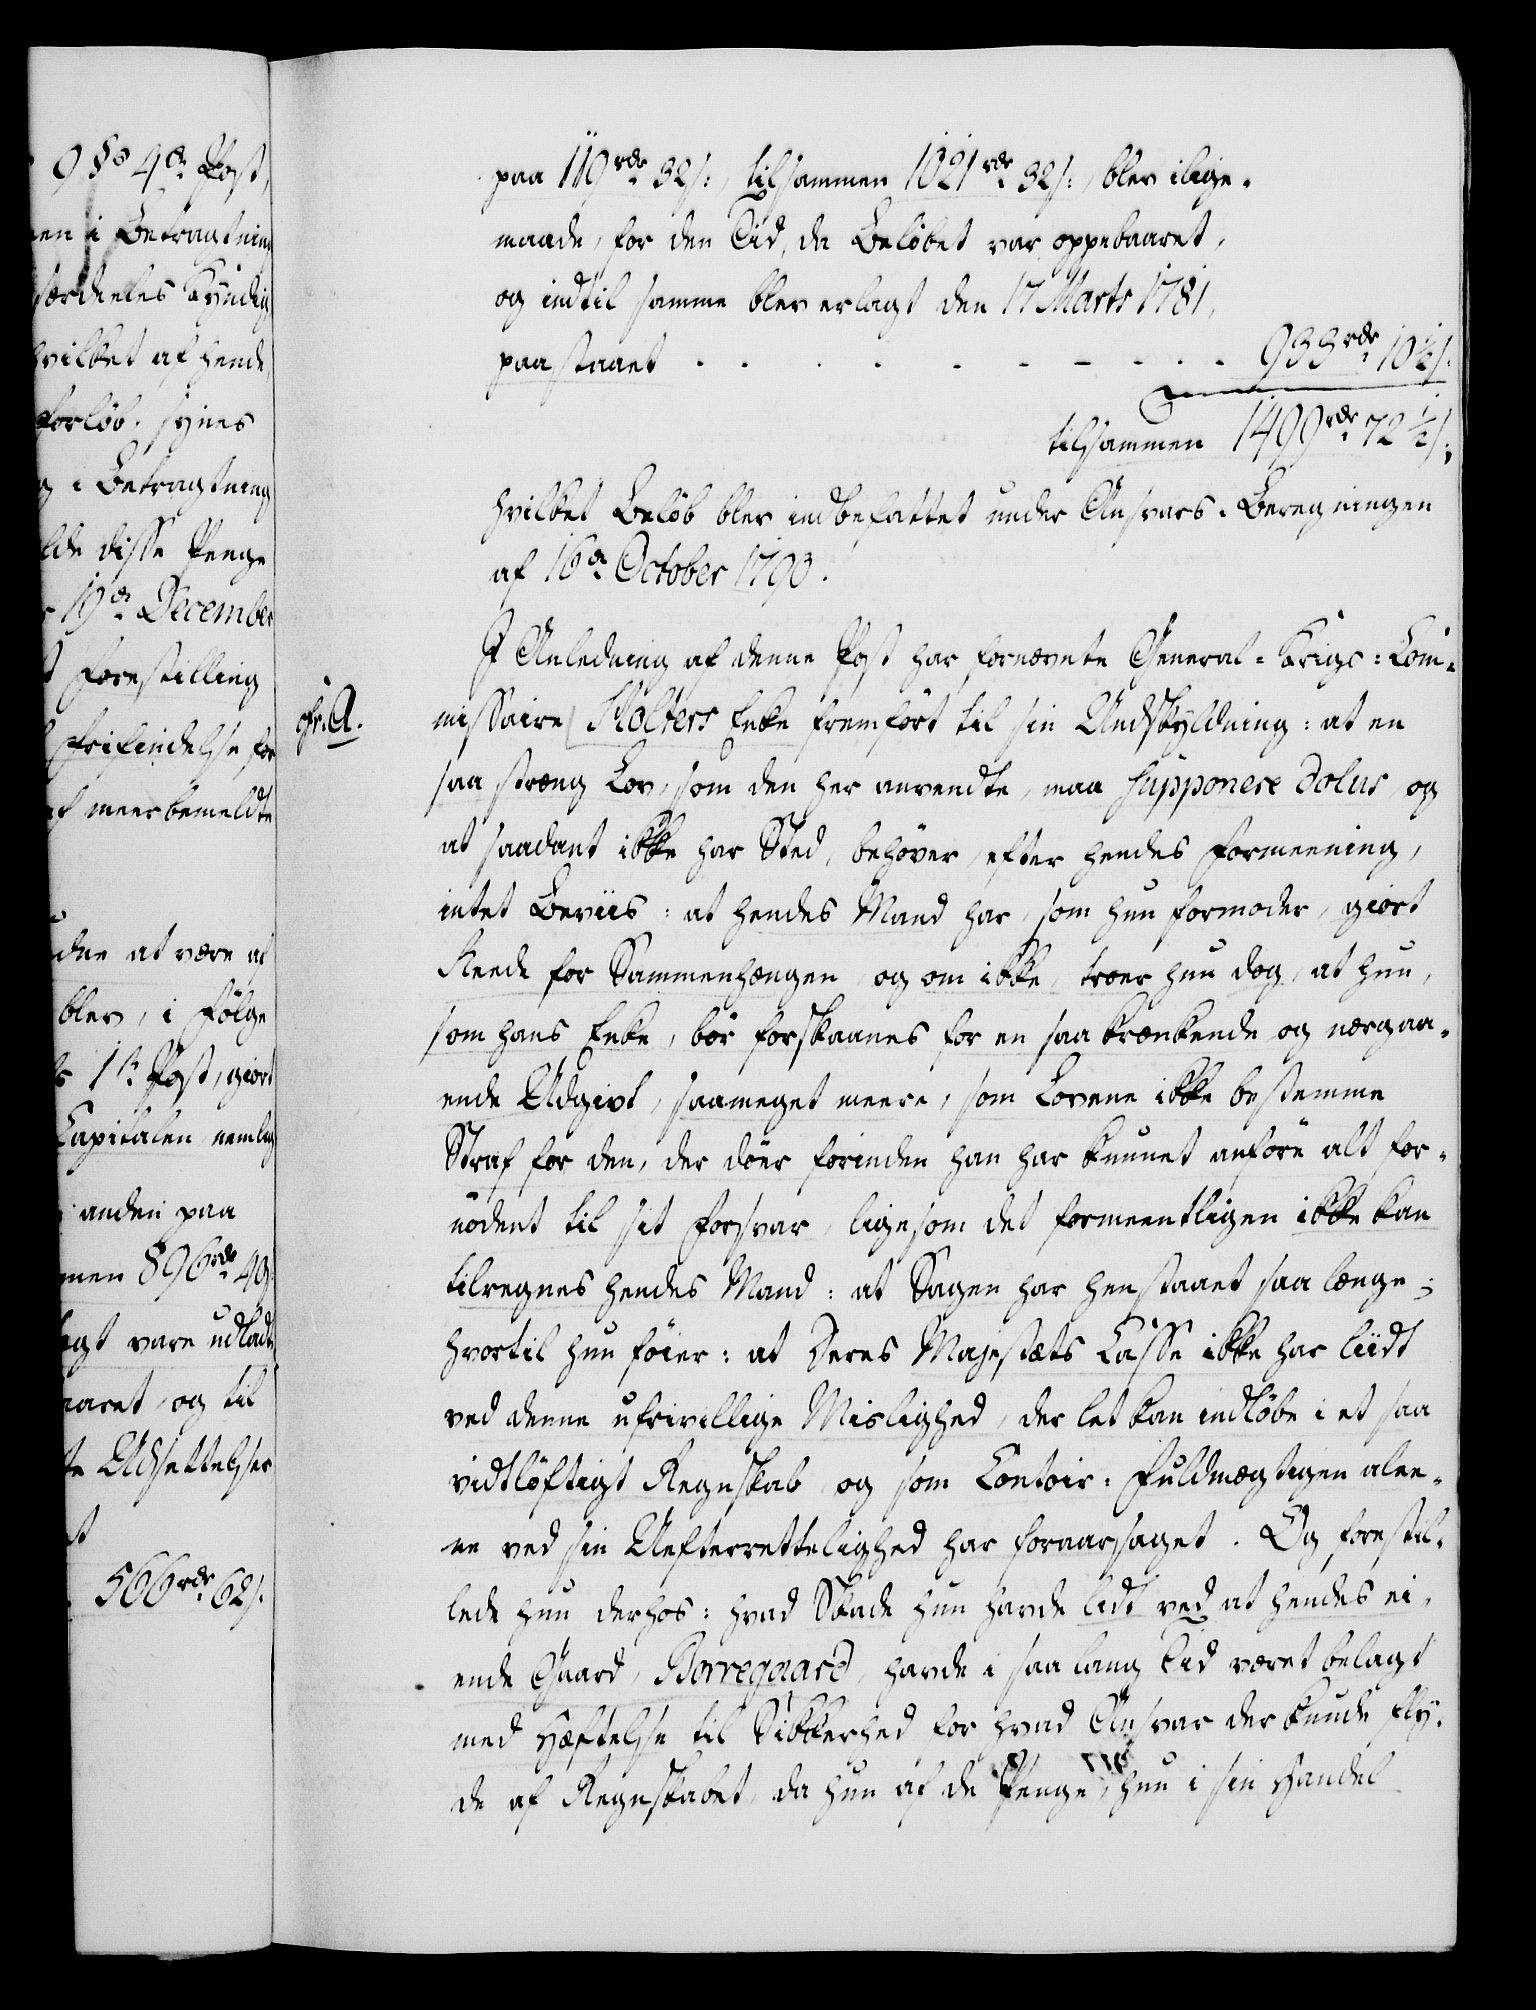 9 §s 4de Post,
i Betragtning
særdeeles kyndig
hvilket af hende
forløb. synes
i Betragtning
disse Penge
19de December
forestilling
frifindelse for
af meerbemeldte
at være af
blev, i følge
1ste Post, giort
Capitalen nemlig
anden paa
896rdr 49
vare udladt
og til
Udsettelser
566rdr 62s.
paa 119rdr 32s:, tilsammen 1021rdr 32s:, blev ilige-
maade, for den Tid, da Beløbet var oppebaaret,
og indtil samme blev erlagt den 17 Marts 1781,
paastaaet . . . . . . . . . 933rdr 10½s.
tilsammen 1499rdr 72½s;
hvilket Beløb blev indbefattet under Ansvars-Beregningen
af 16de October 1793.
I Anledning af denne Post har fornævnte General-Krigs-Com-
cfr. A.
missaire Holters Enke fremført til sin Undskyldning: at en
saa stræng Lov, som den her anvendte, maa supponere dolus, og
at saadant ikke har Sted, behøver, efter hendes formeening,
intet Beviis: at hendes Mand har, som hun formoder, giort
Reede for Sammenhængen, og om ikke, troer hun dog, at hun,
som hans Enke, bør forskaanes for en saa krænkende og nærgaa-
ende Udgivt, saameget meere, som Lovene ikke bestemme
Straf for den, der døer forinden han har kunnet anføre alt for-
nødent til sit forsvar, ligesom det formeentligen ikke kan
tilregnes hendes Mand: at Sagen har henstaaet saa længe;
hvortil hun føier: at Deres Majestæts Casse ikke har liidt
ved denne ufrivillige Mislighed, der let kan indløbe i et saa
vidtløftigt Regnskab og som Contoir-Fuldmægtigen alee-
ne ved sin Uefterrettelighed har foraarsaget. Og forestil-
lede hun derhos: hvad Skade hun havde lidt ved at hendes ei-
ende Gaard, Borregaard, havde i saa lang Tid været belagt
med Hæftelse til Sikkerhed for hvad Ansvar der kunde fly-
de af Regnskabet, da hun af de Penge, hun i sin Handel